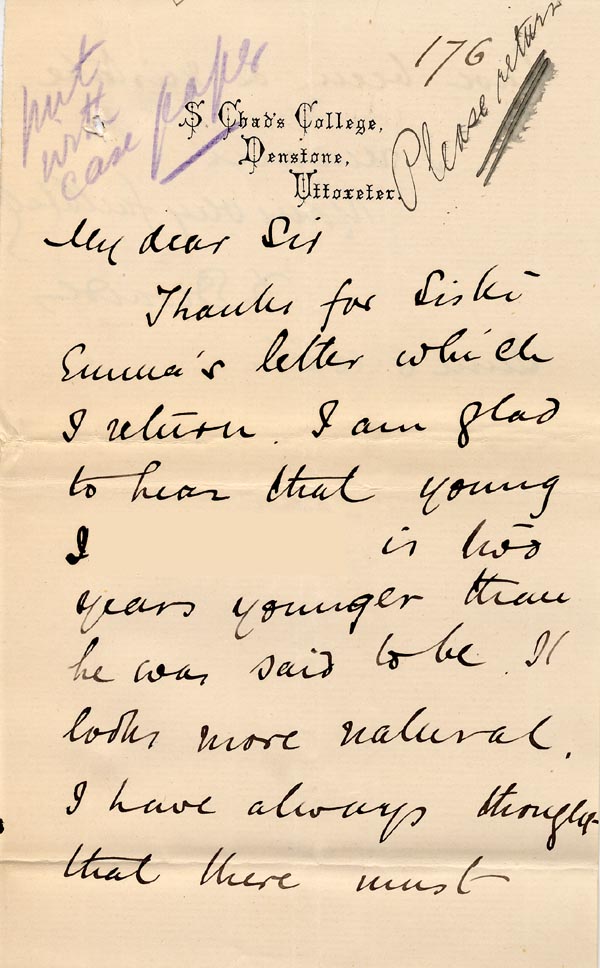 put
with
case paper
176
Please return
S. Chad's College,
Denstone,
Uttoxeter.
My dear Sir
Thanks for Sister
Emma's letter which
I return. I am glad
to hear that young
I is two
years younger than
he was said to be. It
looks more natural.
I have always thought
that there must